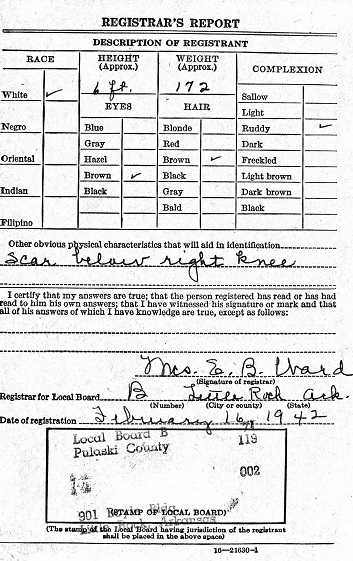 REGISTRAR'S REPORT
DESCRIPTION OF REGISTRANT
RACE
HEIGHT (Approx.)
WEIGHT (Approx.)
COMPLEXION
White ✓
6 ft.
172
Sallow
EYES
HAIR
Light
Negro
Blue
Blonde
Ruddy ✓
Gray
Red
Dark
Oriental
Hazel
Brown ✓
Freckled
Brown ✓
Black
Light brown
Indian
Black
Gray
Dark brown
Bald
Black
Filipino
Other obvious physical characteristics that will aid in identification
Scar below right knee
I certify that my answers are true; that the person registered has read or has had
read to him his own answers; that I have witnessed his signature or mark and that
all of his answers of which I have knowledge are true, except as follows:
Mrs. E. B. Ward
(Signature of registrar)
Registrar for Local Board B Little Rock Ark.
(Number) (City or county) (State)
Date of registration February 16, 1942
Local Board B 119
Pulaski County
002
901
(STAMP OF LOCAL BOARD)
Arkansas
(The stamp of the Local Board having jurisdiction of the registrant
shall be placed in the above space)
16—21630-1